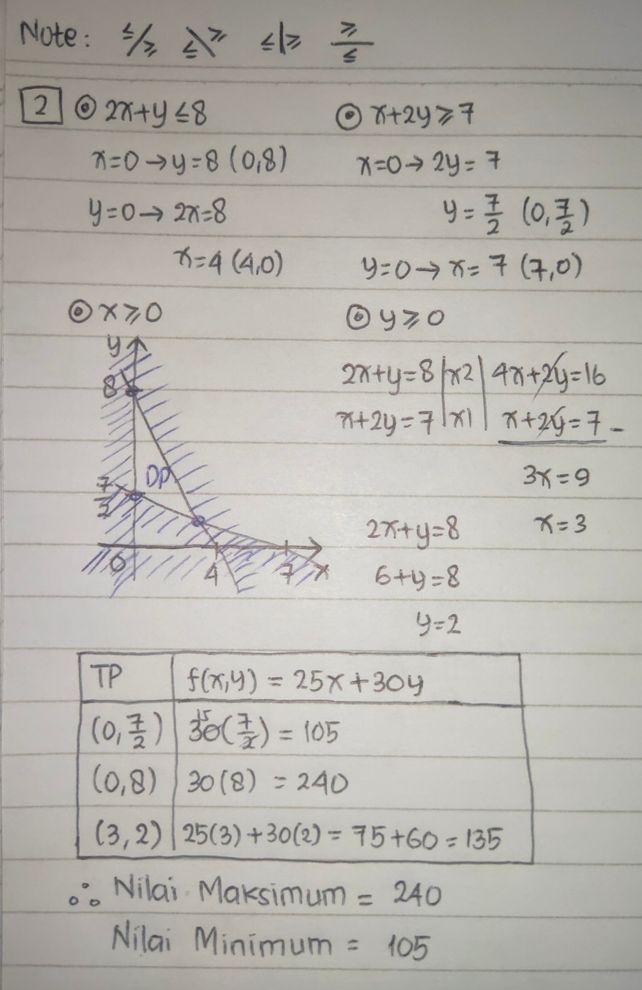 Note: ≤/≥ ≤\≥ ≤|≥ ≥/≤
2 ⊙ 2x+y≤8
x=0→y=8 (0,8)
y=0→ 2x=8
x=4 (4,0)
⊙ x+2y≥7
x=0→2y=7
y=7/2 (0,7/2)
y=0→x=7 (7,0)
⊙ x≥0
y
8
7/2
DP
0
4
7
x
⊙ y≥0
2x+y=8 |x2| 4x+2y=16
x+2y=7 |x1| x+2y=7 –
3x=9
x=3
2x+y=8
6+y=8
y=2
TP f(x,y) = 25x+30y
(0,7/2) 30 15 (7/2) = 105
(0,8) 30(8) = 240
(3,2) 25(3)+30(2)=75+60=135
∴ Nilai Maksimum = 240
Nilai Minimum = 105